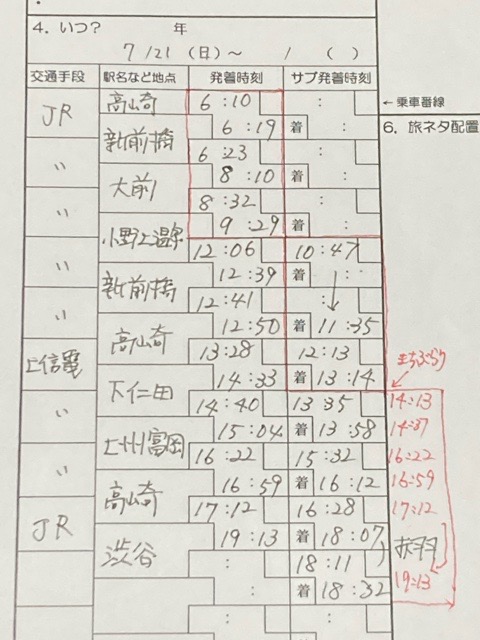 4. いつ? 年
7/21 (日)～ / ( )
交通手段 駅名など地点 発着時刻 サブ発着時刻
←乗車番線
6. 旅ネタ配置
JR 高崎 6:10 :
新前橋 6:19 着 :
〃 6:23 :
大前 8:10 着 :
〃 8:32 :
小野上温泉 9:29 着 :
〃 12:06 10:47
新前橋 12:39 着 :
〃 12:41 :
高崎 12:50 着 11:35
上信電 13:28 12:13
下仁田 14:33 着 13:14
まちぶらり
〃 14:40 13:35 14:13
上州富岡 15:04 着 13:58 14:37
〃 16:22 15:32 16:22
高崎 16:59 着 16:12 16:59
JR 17:12 16:28 17:12
渋谷 19:13 着 18:07
赤羽
: 18:11
: 着 18:32 19:13
: :